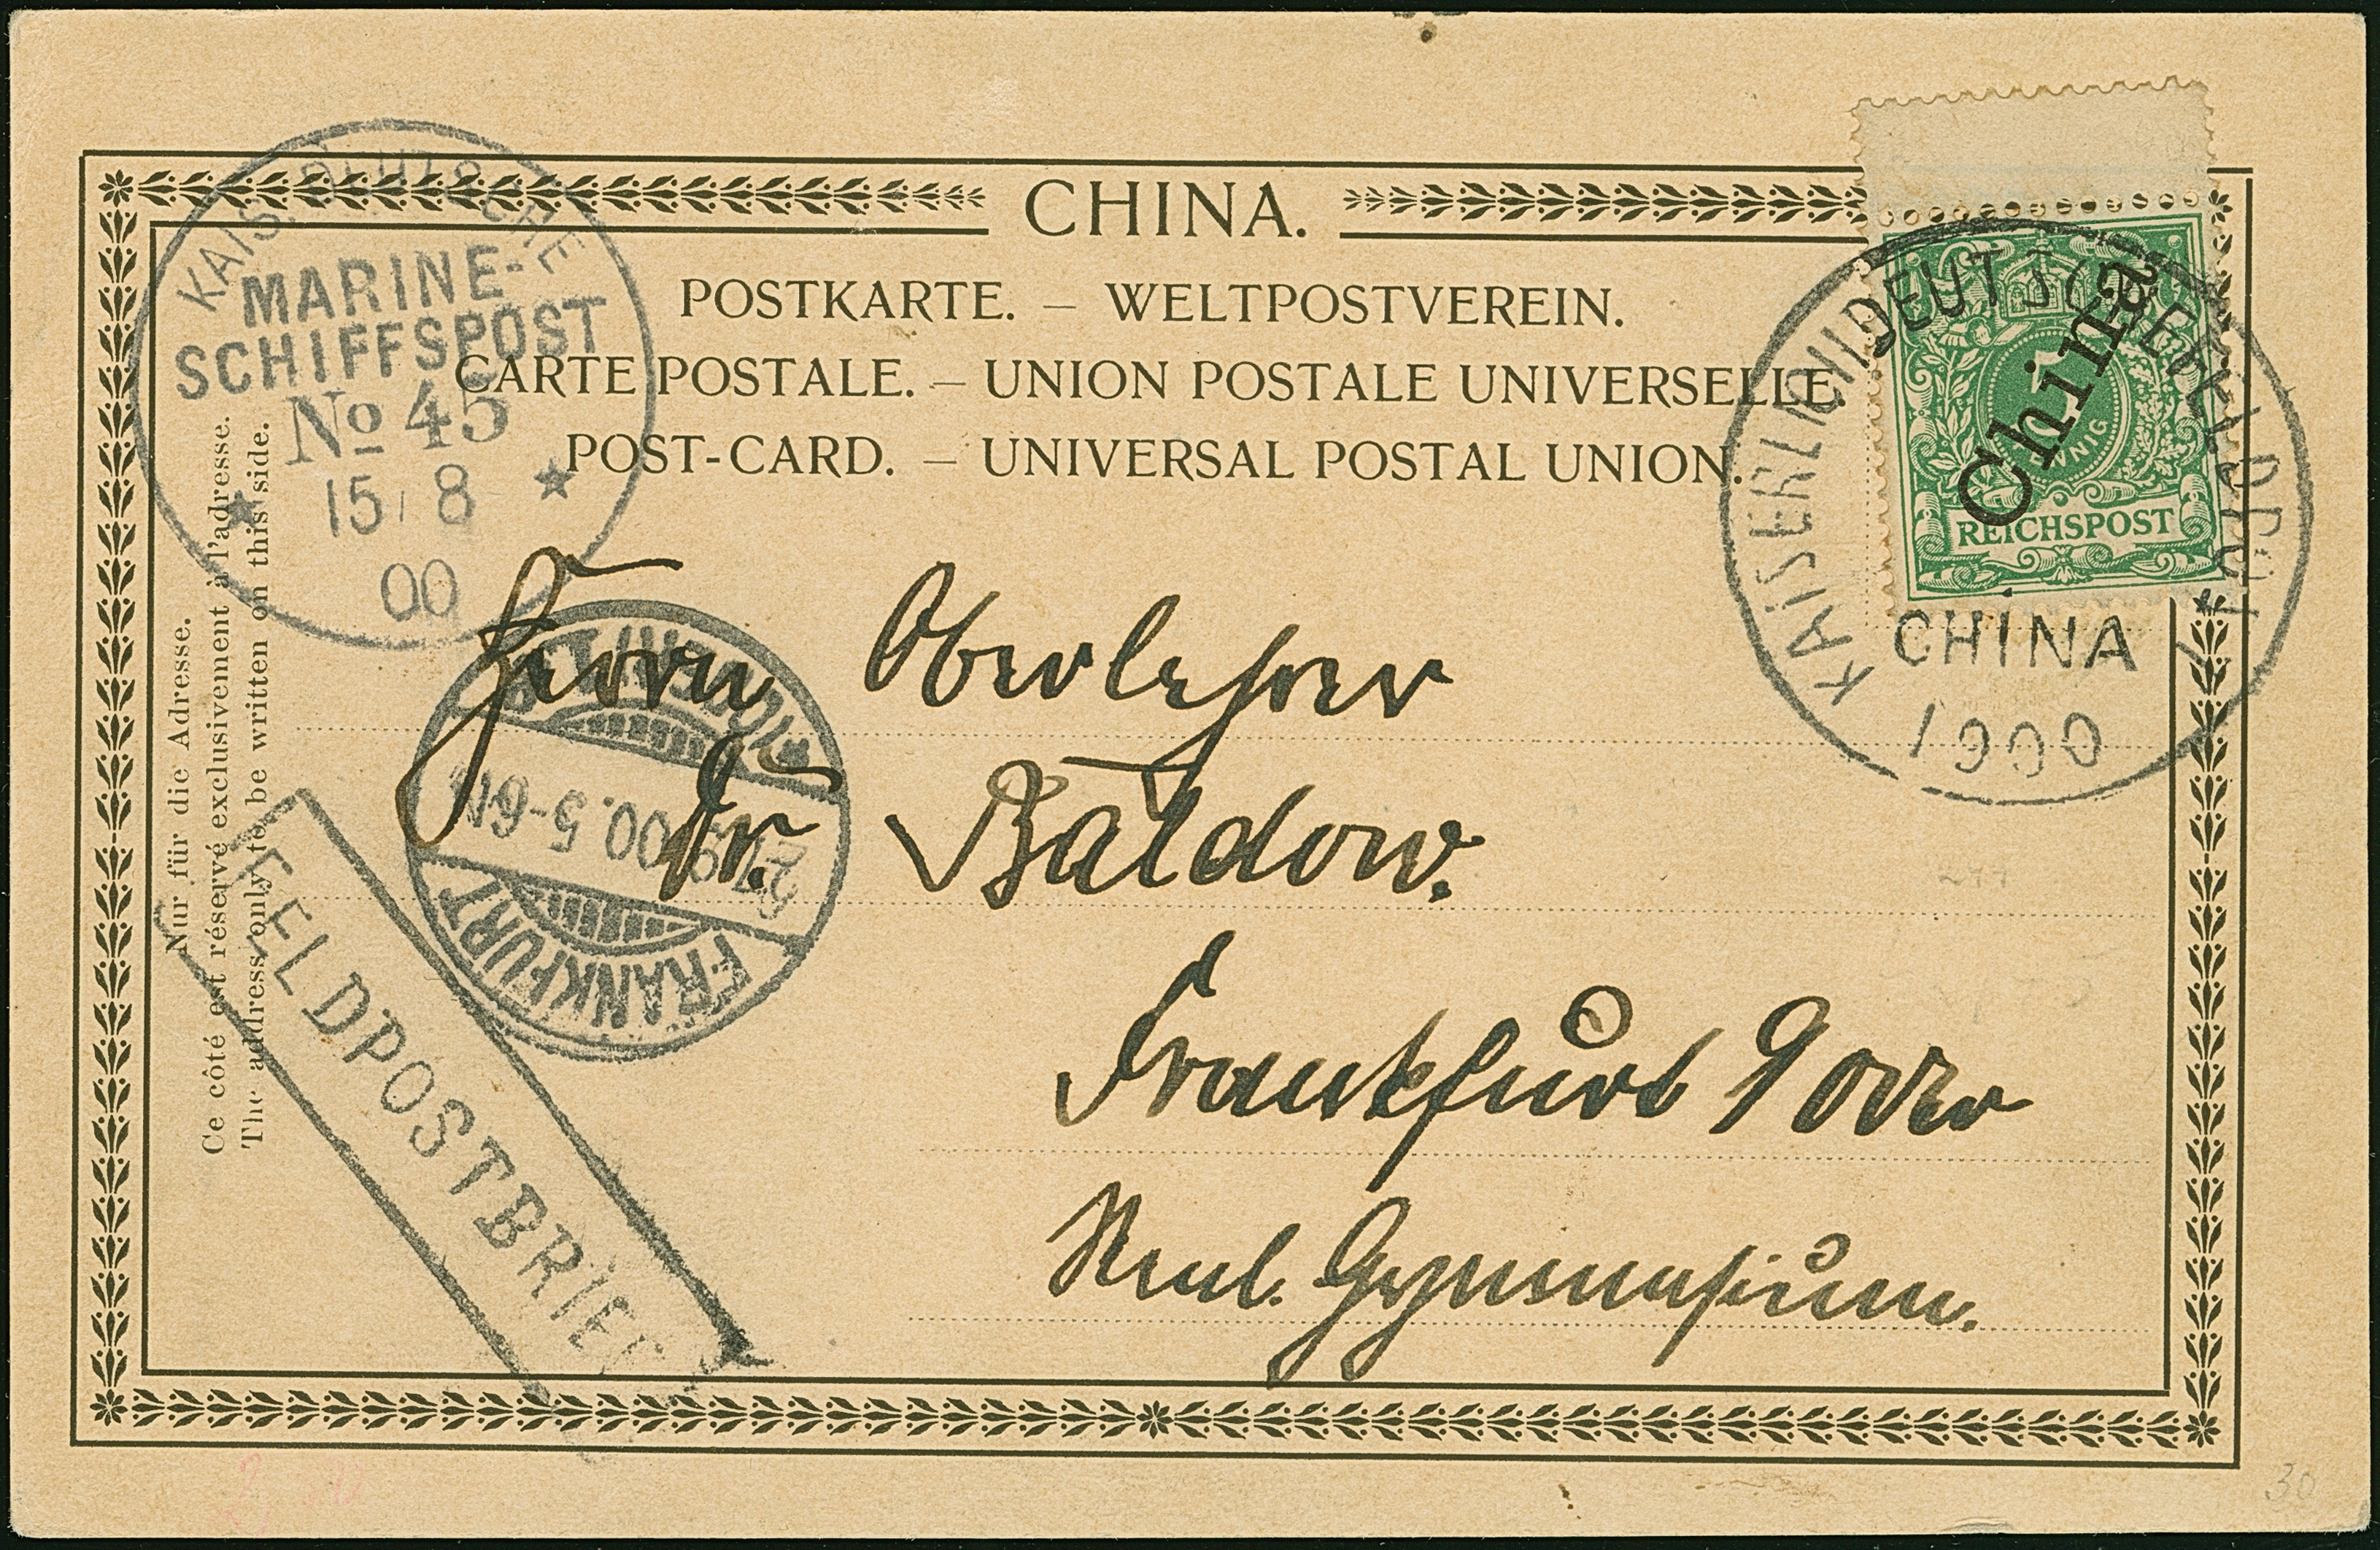 CHINA.
POSTKARTE. – WELTPOSTVEREIN.
CARTE POSTALE. – UNION POSTALE UNIVERSELLE.
POST-CARD. – UNIVERSAL POSTAL UNION.
KAIS. DEUTSCHE
MARINE-
SCHIFFSPOST
No 45
15/8
00
China
PFENNIG
REICHSPOST
KAISERLICH DEUTSCHE
CHINA
1900
Herrn Oberlehrer
Dr. Baldow.
Frankfurt 9 Oder
Real. Gymnasium.
FRANKFURT
27.9.00.5-6N
FELDPOSTBRIEF
Nur für die Adresse.
Ce côté est réservé exclusivement à l'adresse.
The address only to be written on this side.
30